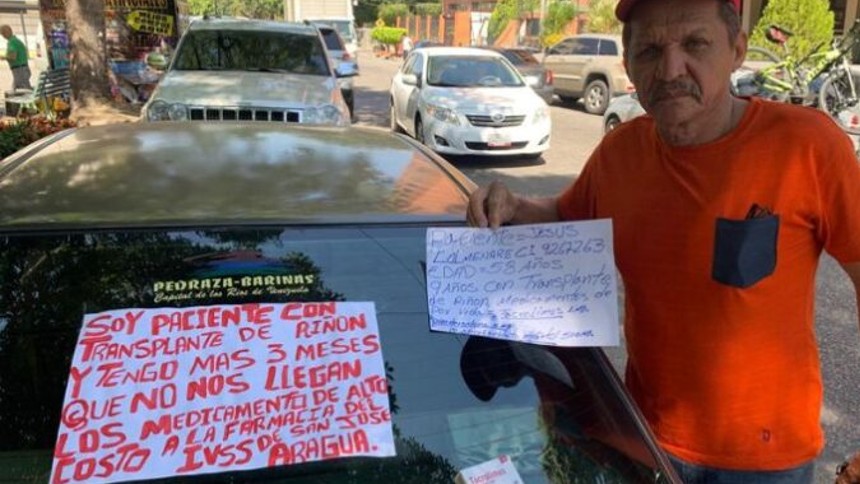 PEDRAZA-BARINAS
Capital de los Ríos de Venezuela
SOY PACIENTE CON
TRANSPLANTE DE RIÑON
Y TENGO MAS 3 MESES
QUE NO NOS LLEGAN
LOS MEDICAMENTO DE ALTO
COSTO A LA FARMACIA DEL
IVSS DE SAN JOSE
ARAGUA.
Paciente = JESUS
COLMENARE C.I 9267263
EDAD = 58 AÑOS
9 AÑOS CON Transplante
de Riñon Medicamentos de
Por vida Tacrolimus
Tacrolimus